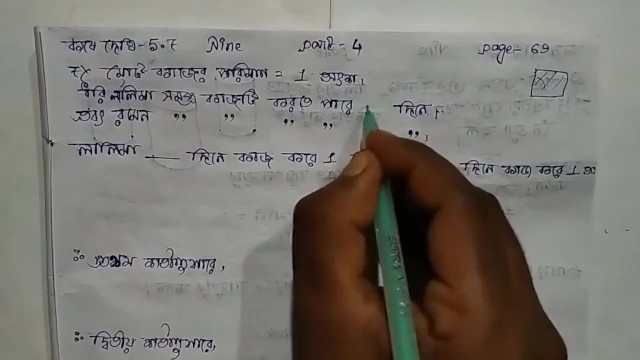 কষে দেখি-5.৮ Nine part-4 page-69
৭× মোট কাজের পরিমাণ = 1 অংশ,
ধরি ললিমা সমস্ত কাজটি করতে পারে দিনে,
এবং রমেন " " " " ",
লালিমা — দিনে কাজ করে 1 দিনে কাজ করে 1
∴ প্রথম শর্তানুসারে,
∴ দ্বিতীয় শর্তানুসারে,